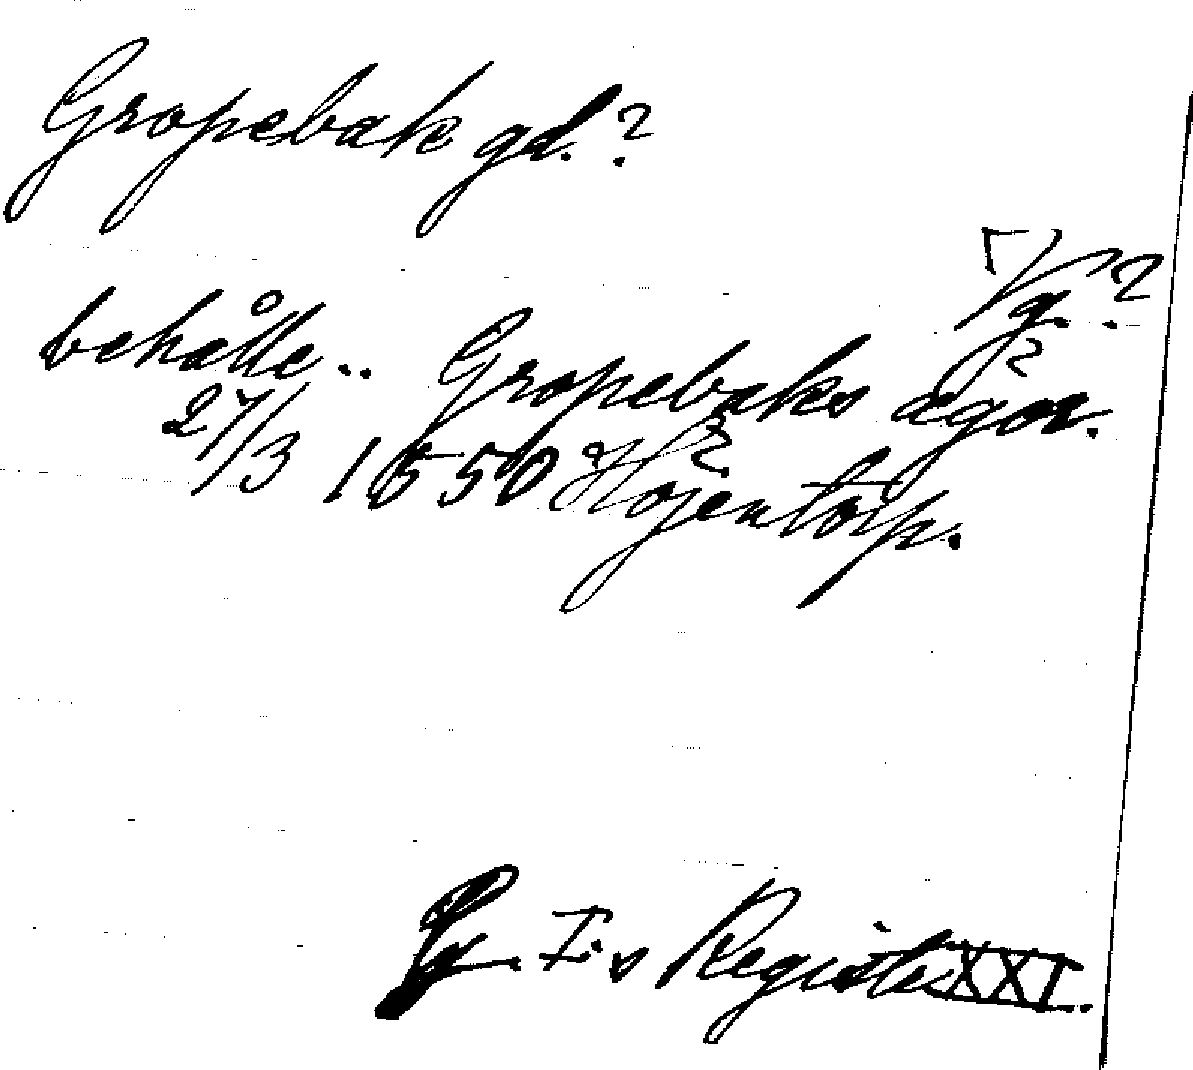 Gropebak gd.?
Vg.?
behålle.. Gropebaks ägor.
27/3 1550 Höjentorp.
G. I:s Registr. XXI.